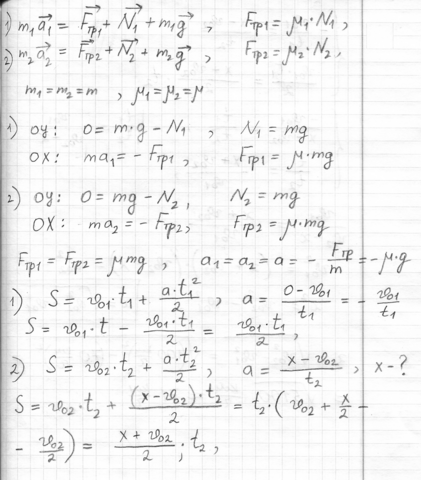 1) m₁a⃗₁ = F⃗тр₁ + N⃗₁ + m₁g⃗ , Fтр₁ = μ₁·N₁ ,
2) m₂a⃗₂ = F⃗тр₂ + N⃗₂ + m₂g⃗ , Fтр₂ = μ₂·N₂ ,
m₁ = m₂ = m , μ₁ = μ₂ = μ
1) оу: 0 = m·g − N₁ , N₁ = mg
ОХ: ma₁ = − Fтр₁ , Fтр₁ = μ·mg
2) оу: 0 = mg − N₂ , N₂ = mg
ОХ: ma₂ = − Fтр₂ , Fтр₂ = μ·mg
Fтр₁ = Fтр₂ = μmg , a₁ = a₂ = a = − Fтр/m = −μ·g
1) S = v₀₁·t₁ + a·t₁²/2 , a = (0 − v₀₁)/t₁ = − v₀₁/t₁
S = v₀₁·t − v₀₁·t₁/2 = v₀₁·t₁/2 ,
2) S = v₀₂·t₂ + a·t₂²/2 , a = (x − v₀₂)/t₂ , x − ?
S = v₀₂·t₂ + (x − v₀₂)·t₂/2 = t₂·(v₀₂ + x/2 −
− v₀₂/2) = (x + v₀₂)/2 · t₂ ,